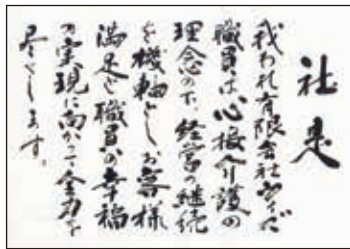 社是
我われ有限会社
職員は心接介護の
理念の下、経営の継続
を機軸としお客様
満足と職員の幸福
の実現に向かって全力を
尽くします。